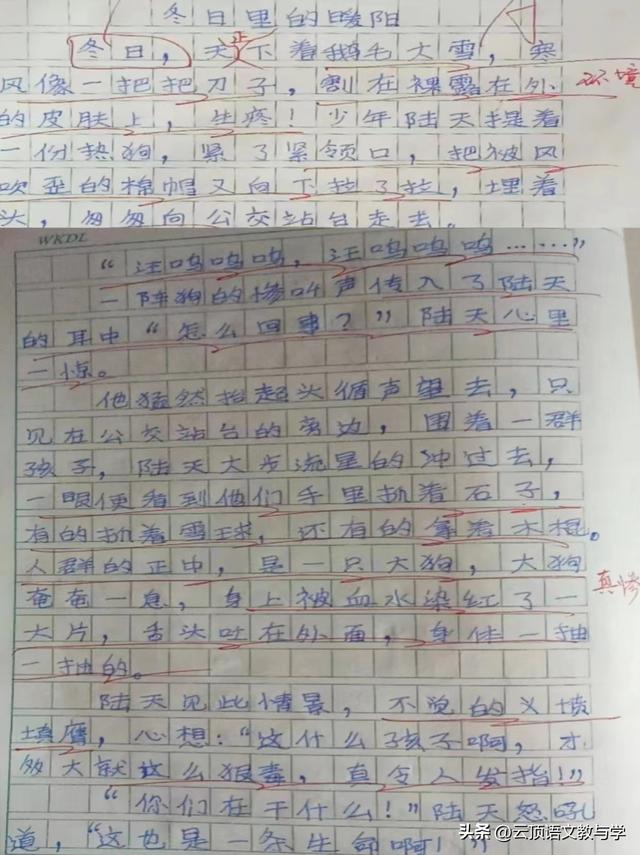 冬日里的暖阳
冬日,天正下着鹅毛大雪,寒
风像一把把刀子,割在裸露在外
环境
的皮肤上,生疼!少年陆天提着
一份热狗,紧了紧领口,把被风
吹歪的棉帽又向下拉了拉,埋着
头,匆匆向公交站台走去。
WKDL
“汪呜呜呜,汪呜呜呜……”
一阵狗的惨叫声传入了陆天
的耳中“怎么回事?”陆天心里
一惊。
他猛然抬起头循声望去,只
见在公交站台的旁边,围着一群
孩子,陆天大步流星的冲过去,
一眼便看到他们手里抓着石子,
有的抓着雪球,还有的拿着木棍。
人群的正中,是一只大狗,大狗
真惨
奄奄一息,身上被血水染红了一
大片,舌头吐在外面,身体一抽
一抽的。
陆天见此情景,不觉的义愤
填膺,心想:“这什么孩子啊,才
多大就这么狠毒,真令人发指!”
“你们在干什么!”陆天怒吼
道,“这也是一条生命啊!”
头条 @云顶语文教与学